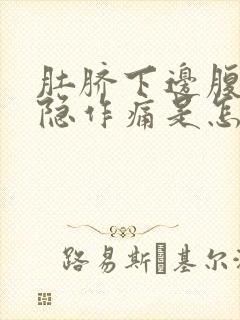 肚脐下邊腹
隐作痛是怎
路易斯·基尔